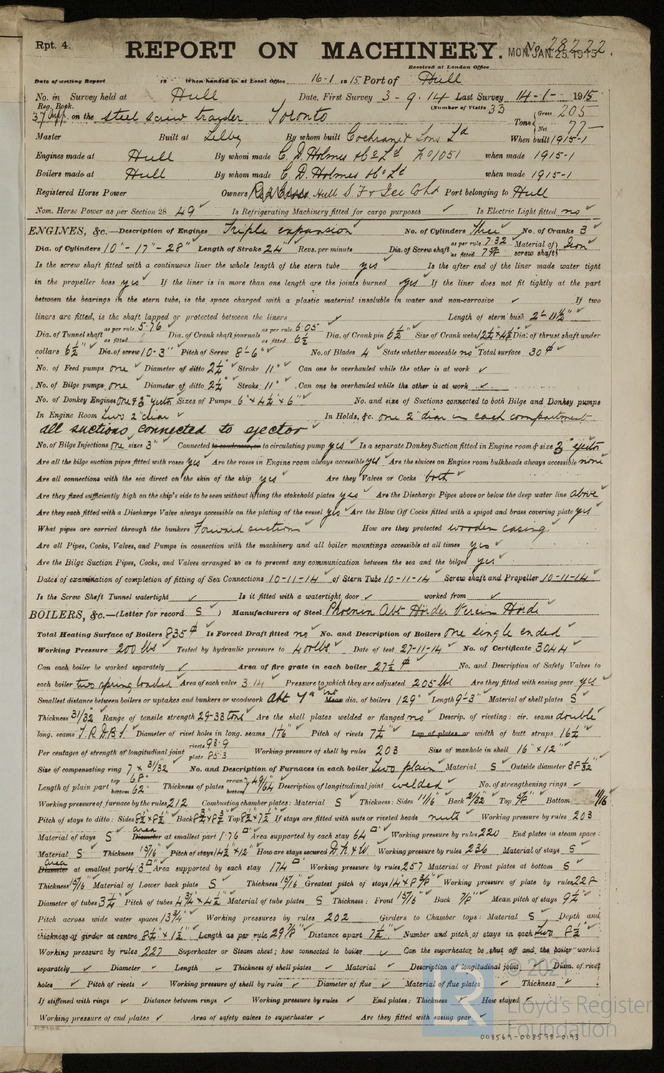 Rpt. 4.
REPORT ON MACHINERY.
No. 28222.
MON. JAN. 25. 1915
Received at London Office
Date of writing Report 19 When handed in at Local Office 16-1 1915. Port of Hull
No. in Survey held at Hull Date, First Survey 3-9-14 Last Survey 14-1- 1915
Reg. Book. (Number of Visits 33
37 Supp. on the steel screw trawler Toronto Tons { Gross 205 Net 77
Master Built at Selby By whom built Cochrane & Sons Ld When built 1915-1
Engines made at Hull By whom made C. D. Holmes & Co Ld No 1051 when made 1915-1
Boilers made at Hull By whom made C. D. Holmes & Co Ld when made 1915-1
Registered Horse Power Owners Hull S. F. & Ice Co Ld Port belonging to Hull
Nom. Horse Power as per Section 28 49 Is Refrigerating Machinery fitted for cargo purposes Is Electric Light fitted no
ENGINES, &c.—Description of Engines Triple expansion No. of Cylinders Three No. of Cranks 3
Dia. of Cylinders 10" - 17" - 28" Length of Stroke 24" Revs. per minute Dia. of Screw shaft as per rule 7.32 as fitted Material of screw shaft Iron
Is the screw shaft fitted with a continuous liner the whole length of the stern tube yes Is the after end of the liner made water tight
in the propeller boss yes If the liner is in more than one length are the joints burned yes If the liner does not fit tightly at the part
between the bearings in the stern tube, is the space charged with a plastic material insoluble in water and non-corrosive If two
liners are fitted, is the shaft lapped or protected between the liners Length of stern bush 2'-11½"
Dia. of Tunnel shaft as per rule 5.76 as fitted Dia. of Crank shaft journals as per rule 6.05 as fitted 6½ Dia. of Crank pin 6½" Size of Crank webs 12½"x4½" Dia. of thrust shaft under
collars 6½" Dia. of screw 10-3" Pitch of Screw 8'-6" No. of Blades 4 State whether moveable no Total surface 30
No. of Feed pumps one Diameter of ditto 2½" Stroke 11" Can one be overhauled while the other is at work
No. of Bilge pumps one Diameter of ditto 2½" Stroke 11" Can one be overhauled while the other is at work
No. of Donkey Engines one & 3" ejector Sizes of Pumps 6" x 4½" x 6" No. and size of Suctions connected to both Bilge and Donkey pumps
In Engine Room two 2" diar In Holds, &c. one 2" diar in each compartment
all suctions connected to ejector
No. of Bilge Injections one sizes 3" Connected to condenser, or to circulating pump yes Is a separate Donkey Suction fitted in Engine room & size 3" ejector
Are all the bilge suction pipes fitted with roses yes Are the roses in Engine room always accessible yes Are the sluices on Engine room bulkheads always accessible none
Are all connections with the sea direct on the skin of the ship yes Are they Valves or Cocks both
Are they fixed sufficiently high on the ship's side to be seen without lifting the stokehold plates yes Are the Discharge Pipes above or below the deep water line above
Are they each fitted with a Discharge Valve always accessible on the plating of the vessel yes Are the Blow Off Cocks fitted with a spigot and brass covering plate yes
What pipes are carried through the bunkers Forward suctions How are they protected wooden casing
Are all Pipes, Cocks, Valves, and Pumps in connection with the machinery and all boiler mountings accessible at all times yes
Are the Bilge Suction Pipes, Cocks, and Valves arranged so as to prevent any communication between the sea and the bilges yes
Dates of examination of completion of fitting of Sea Connections 10-11-14 of Stern Tube 10-11-14 Screw shaft and Propeller 10-11-14
Is the Screw Shaft Tunnel watertight Is it fitted with a watertight door worked from
BOILERS, &c.—(Letter for record S) Manufacturers of Steel Phoenix Abt Hörder Verein Hörde
Total Heating Surface of Boilers 835 Is Forced Draft fitted no No. and Description of Boilers one single ended
Working Pressure 200 lbs Tested by hydraulic pressure to 400 lbs Date of test 27-11-14 No. of Certificate 3044
Can each boiler be worked separately Area of fire grate in each boiler 27½ No. and Description of Safety Valves to
each boiler two spring loaded Area of each valve 3.14 Pressure to which they are adjusted 205 lbs Are they fitted with easing gear yes
Smallest distance between boilers or uptakes and bunkers or woodwork abt 7" dia. of boilers 129" Length 9'-3" Material of shell plates S
Thickness 31/32 Range of tensile strength 29-33 tons Are the shell plates welded or flanged no Descrip. of riveting: cir. seams double
long. seams T.R.D.B.S. Diameter of rivet holes in long. seams Pitch of rivets Lap of plates or width of butt straps 16½"
Per centages of strength of longitudinal joint rivets 93.9 plate 85.3 Working pressure of shell by rules 203 Size of manhole in shell 16" x 12"
Size of compensating ring 7 x 31/32 No. and Description of Furnaces in each boiler two plain Material S Outside diameter
Length of plain part top 68" bottom 62" Thickness of plates 49/64 Description of longitudinal joint welded No. of strengthening rings
Working pressure of furnace by the rules 212 Combustion chamber plates: Material S Thickness: Sides 11/16 Back 21/32 Top Bottom 11/16
Pitch of stays to ditto: Sides Back Top If stays are fitted with nuts or riveted heads nuts Working pressure by rules 203
Material of stays S area at smallest part 1.76 Area supported by each stay 64 Working pressure by rules 220 End plates in steam space:
Material S Thickness 15/16 Pitch of stays 14½" x 12" How are stays secured D.N & W Working pressure by rules 236 Material of stays S
area at smallest part Area supported by each stay 174 Working pressure by rules 257 Material of Front plates at bottom S
Thickness 15/16 Material of Lower back plate S Thickness 15/16 Greatest pitch of stays Working pressure of plate by rules 228
Diameter of tubes 3½" Pitch of tubes Material of tube plates S Thickness: Front 15/16 Back 7/8" Mean pitch of stays
Pitch across wide water spaces 13¾" Working pressures by rules 202 Girders to Chamber tops: Material S Depth and
thickness of girder at centre 8½" x 1½" Length as per rule Distance apart 7½" Number and pitch of stays in each two 8½"
Working pressure by rules 227 Superheater or Steam chest; how connected to boiler Can the superheater be shut off and the boiler worked
separately Diameter Length Thickness of shell plates Material Description of longitudinal joint Diam. of rivet
holes Pitch of rivets Working pressure of shell by rules Diameter of flue Material of flue plates Thickness
If stiffened with rings Distance between rings Working pressure by rules End plates: Thickness How stayed
Working pressure of end plates Area of safety valves to superheater Are they fitted with easing gear
© 2021
Lloyd's Register
Foundation
008569-008598-0193